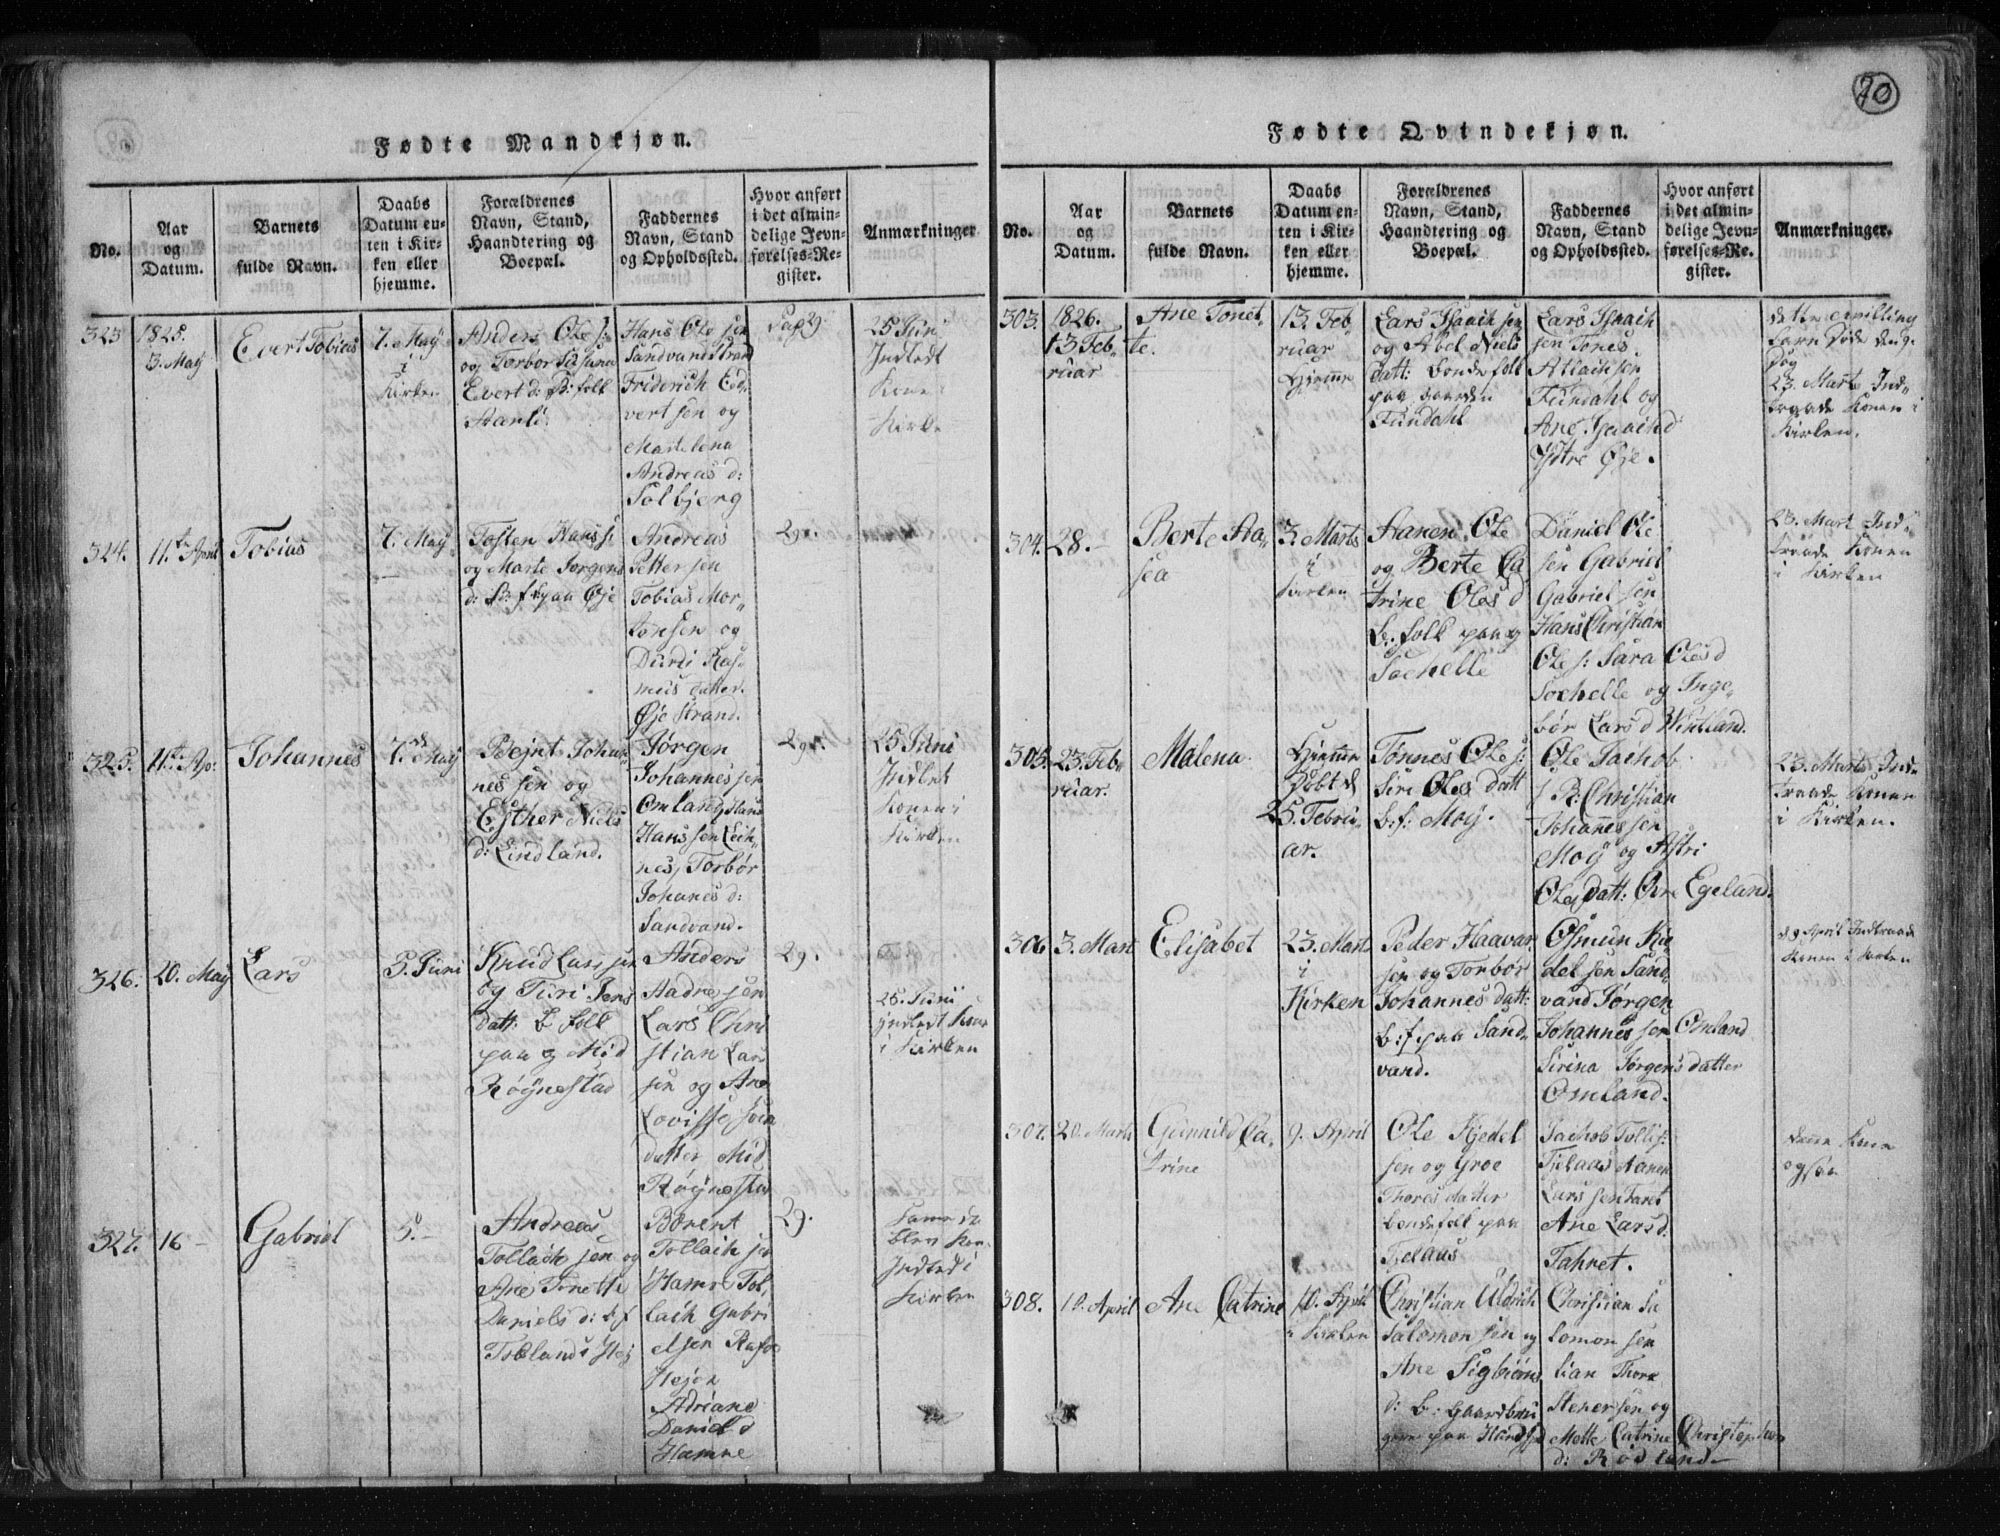 70
Fødte Mandkjøn.
No.
Aar
og
Datum.
Barnets
fulde Navn.
Daabs
Datum en-
ten i Kir-
ken eller
hjemme.
Forældrenes
Navn, Stand,
Haandtering og
Boepæl.
Faddernes
Navn, Stand
og Opholdssted.
Hvor anført
i det almin-
delige Jevn-
førelses-Re-
gister.
Anmærkninger
323
1825.
3. Maÿ
Evert Tobias
7. Maÿ
i
Kirken
Anders Ole s:
og Torbor
Evert d: B: folk
Hans Ole sen
Sandvand Strand
Friderich Ed-
vert sen og
Andreas d:
Solbjerg
25 Juni
Indledt
Konen i
Kirken
324.
11te April
Tobias
7. Maÿ
Tosten Hans s:
og Marte Jørgens
d: B: f paa Øje
Andreas
Petter sen
Tobias Mor-
tensen og
Durdi Ras-
mus datter.
Øje Strand.
325.
11te Ap:
Johannes
7de Maÿ
Bejnt Johan-
nes sen og
Esther Niels
d: Lindland.
Jørgen
Johannes sen
Omland Hans
Hans sen Leth-
nes, Torbør
Johanes d:
Sandvand.
25 Juni
Indlet
Konen i
Kirken
326.
20. Maÿ
Lars
5. Juni
Knud Lars sen
og Turi Jens
datt: B folk
paa g Mid
Røÿnestad
Anders
Aadne sen
Lars Chri
stian Lar
sen og Ane
Lovisse
datter Mid
Røÿnestad
29.
25. Juni
Indledt Kone
i Kirken
327.
16 –
Gabriel
5. –
Andreas
Tollach sen og
Ane Tonette
Daniels d: B f
Berent
Tollach sen
Hamre Tol-
lach Gabri
elsen
Adriane
Daniels d
Hamne
29.
Samme da
blev Kon
Indled i
Kirken
Fødte Qvindekjøn.
No.
Aar
og
Datum.
Barnets
fulde Navn.
Daabs
Datum en-
ten i Kir-
ken eller
hjemme.
Forældrenes
Navn, Stand,
Haandtering og
Boepæl.
Faddernes
Navn, Stand
og Opholdssted.
Hvor anført
i det almin-
delige Jevn-
førelses-Re-
gister.
Anmærkninger.
303.
1826.
13 Feb-
ruar
Ane Tonet-
te.
13. Feb-
ruar
Hjemme
Lars Isaach sen
og Abel Niels
datt: bonde folk
paa Gaarden
Fundahl
Lars Isaach
sen Tønes
Atlach sen
Fundahl og
Ane Isaach d
Ÿdtre Øje.
dette tvilling
barn Døde
Dag
23. Marts Ind-
Konen i
Kirken.
304.
28. –
Berte Aa-
sea
3. Marts
i
Kirken
Aanen Ole
og Berte Ca
trine Oles d
B: folk paa g
Sochelle
Daniel Ole
sen Gabriel
Gabriel sen
Hans Christian
Ole s: Sara Oles d
Sochelle og Inge-
bør Lars d Vintland.
23. Mart Ind-
traade Konen
i Kirken
305.
23. Feb-
ruar.
Malena
Hjemme
Døbt d
25. Febru-
ar.
Tønnes Ole s:
Siri Oles datt
b: f: Moÿ.
Ole Jachob
s R: Christian
Johannes sen
Moÿ og Astri
Oles datt: Øvre Egeland.
23. Marts Ind-
traade Konen
i Kirken.
306
3. Mart
Elisabet
23. Marts
i
Kirken
Peder Haavar
sen og Torbør
Johannes datt:
b: f paa Sand-
vand.
Osmun Kie
del sen Sand-
vand Jørgen
Johannes sen Omland
Sirina Jørgens datter
Omland.
April Indtraade
Konen i Kirken
307.
20. Marts
Gunnild Ca-
trine
9. April
Ole Kjedel
sen og Groe
Thores datter
bondefolk paa
Fjelaas
Jachob Tollis:
Fielaas Aanen
Lars sen
Ane Lars d:
Denne Kone
ogsaa
308.
10. April
Ane Catrine
10. April
i Kirken
Christian Uldrich
Salomon sen og
Ane Sigbiørns
d: b: Gaardbru
gere paa
Christian Sa
lomon sen
Sten er sen og
Mette Catrine Christophers
d: Rødland